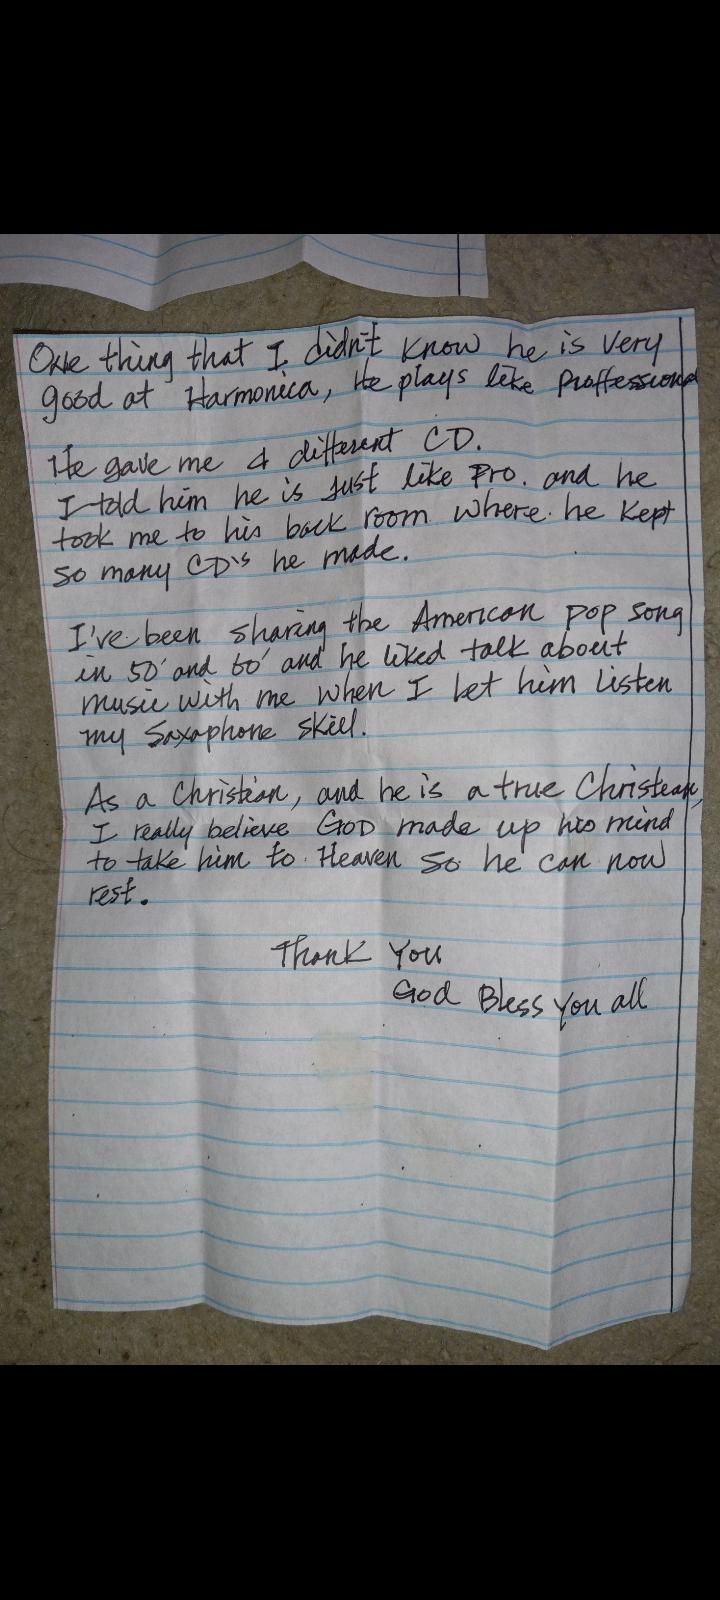 One thing that I didn't know he is very
good at Harmonica, He plays like proffessional
He gave me 4 different CD.
I told him he is Just like Pro. and he
took me to his back room where he kept
so many CD's he made.
I've been sharing the American pop song
in 50' and 60' and he liked talk about
music with me when I let him Listen
my Saxaphone skill.
As a Christian, and he is a true Christean,
I really believe GOD made up his mind
to take him to Heaven so he can now
rest.
Thank You
God Bless you all